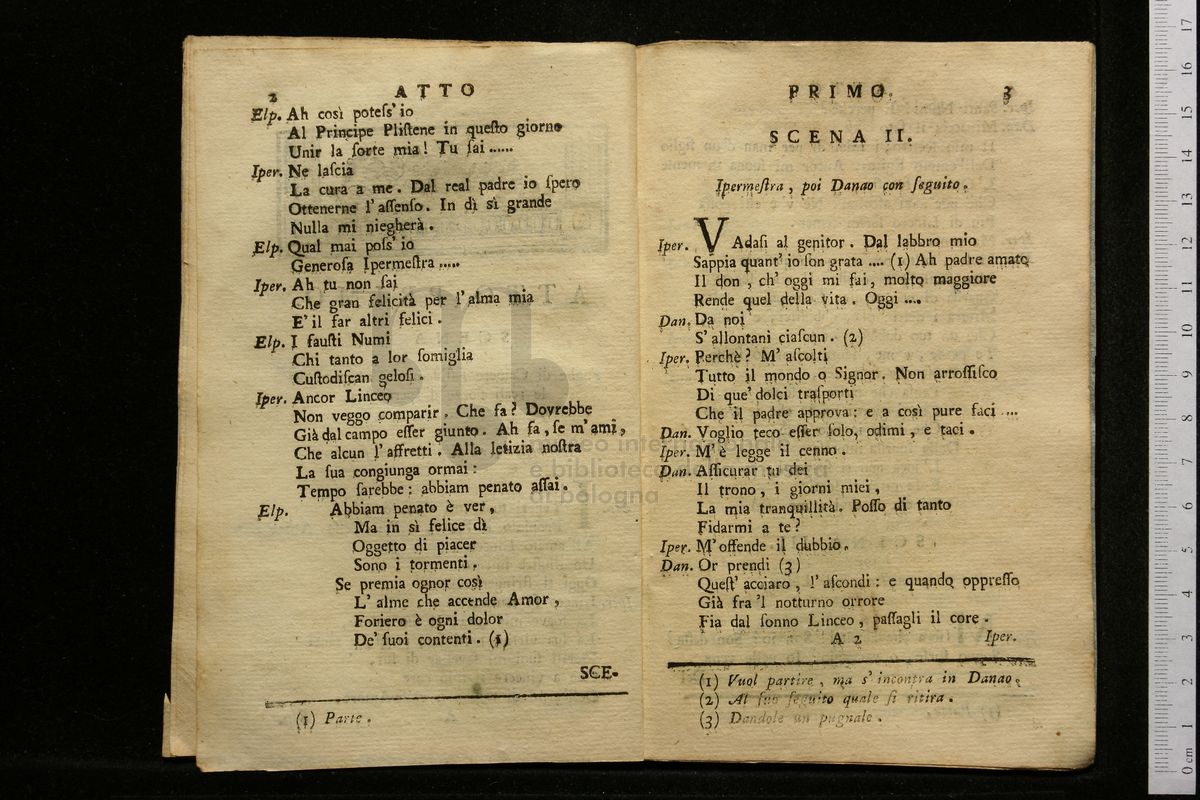 2 ATTO
Elp. Ah così potess' io
Al Principe Plistene in questo giorno
Unir la sorte mia! Tu sai ......
Iper. Ne lascia
La cura a me. Dal real padre io spero
Ottenerne l' assenso. In dì sì grande
Nulla mi niegherà.
Elp. Qual mai poss' io
Generosa Ipermestra .....
Iper. Ah tu non sai
Che gran felicità per l' alma mia
E' il far altri felici.
Elp. I fausti Numi
Chi tanto a lor somiglia
Custodiscan gelosi.
Iper. Ancor Linceo
Non veggo comparir. Che fa? Dovrebbe
Già dal campo esser giunto. Ah fa, se m' ami,
Che alcun l' affretti. Alla letizia nostra
La sua congiunga ormai:
Tempo sarebbe: abbiam penato assai.
Elp. Abbiam penato è ver,
Ma in sì felice dì
Oggetto di piacer
Sono i tormenti.
Se premia ognor così
L' alme che accende Amor,
Foriero è ogni dolor
De' suoi contenti. (1)
SCE-
(1) Parte.
PRIMO. 3
SCENA II.
Ipermestra, poi Danao con seguito.
Iper. VAdasi al genitor. Dal labbro mio
Sappia quant' io son grata .... (1) Ah padre amato
Il don, ch' oggi mi fai, molto maggiore
Rende quel della vita. Oggi ....
Dan. Da noi
S' allontani ciascun. (2)
Iper. Perchè? M' ascolti
Tutto il mondo o Signor. Non arrossisco
Di que' dolci trasporti
Che il padre approva: e a così pure faci ...
Dan. Voglio teco esser solo, odimi, e taci.
Iper. M' è legge il cenno.
Dan. Assicurar tu dei
Il trono, i giorni miei,
La mia tranquillità. Posso di tanto
Fidarmi a te?
Iper. M' offende il dubbio.
Dan. Or prendi (3)
Quest' acciaro, l' ascondi: e quando oppresso
Già fra 'l notturno orrore
Fia dal sonno Linceo, passagli il core.
A 2 Iper.
(1) Vuol partire, ma s' incontra in Danao.
(2) Al suo seguito quale si ritira.
(3) Dandole un pugnale.
museo internazionale
e biblioteca della musica
di bologna
0 cm 1 2 3 4 5 6 7 8 9 10 11 12 13 14 15 16 17